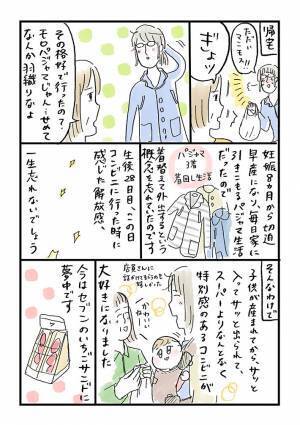 帰宅
ただいマンモス!!
ぎょッ
その格好で行ったの?
モロパジャマじゃん…せめて
なんか羽織りなよ
妊娠8カ月から切迫
早産になり、毎日家に
引きこもるパジャマ生活
だったので
パジャマ
3着
着回し生活
着替えて外出するという
概念を忘れていたのです
生後28日目、この日
コンビニに行った時に
感じた解放感、
一生忘れないでしょう
そんなわけで
子供が産まれてから、サッと
入ってサッと出られて、
スーパーよりなんとなく
特別感のあるコンビニが
大好きになりました
店員さんに
話かけてもらうのも
嬉しかった
かわいいー
今はセブンのいちごサンドに
夢中です